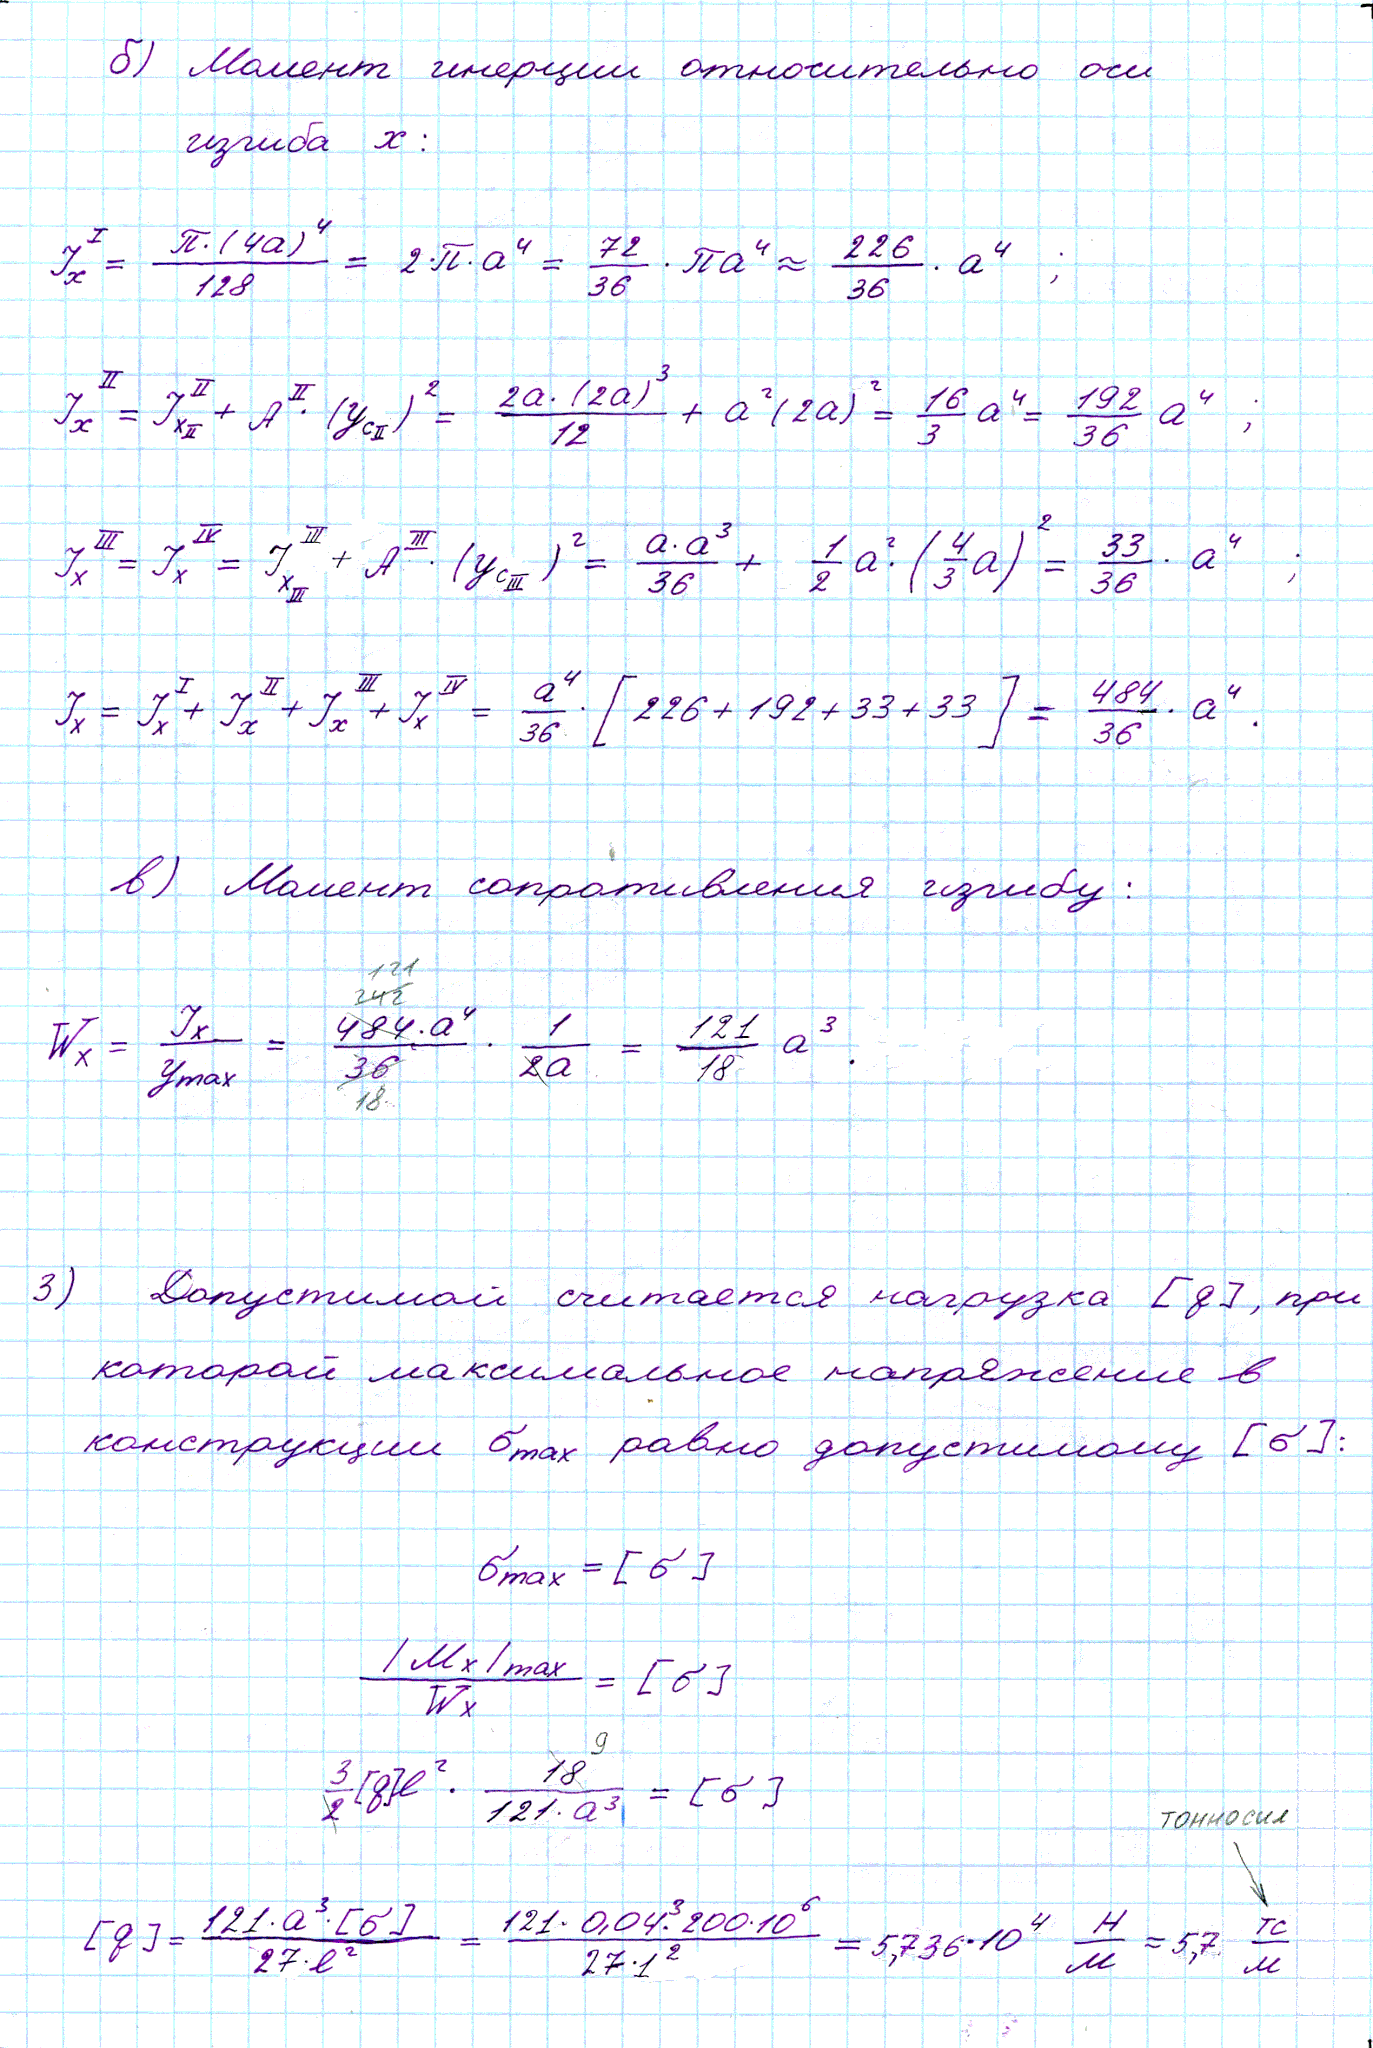 б) Момент инерции относительно оси
изгиба x:
J_x^I = π·(4a)^4/128 = 2·π·a^4 = 72/36 · πa^4 ≈ 226/36 · a^4 ;
J_x^II = J_xII^II + A^II · (y_cII)^2 = 2a·(2a)^3/12 + a^2(2a)^2 = 16/3 a^4 = 192/36 a^4 ;
J_x^III = J_x^IV = J_xIII^III + A^III · (y_cIII)^2 = a·a^3/36 + 1/2 a^2·(4/3 a)^2 = 33/36 · a^4 ;
J_x = J_x^I + J_x^II + J_x^III + J_x^IV = a^4/36 · [226+192+33+33] = 484/36 · a^4 .
в) Момент сопротивления изгибу:
121
242
W_x = J_x/y_max = 484·a^4/36 · 1/2a = 121/18 a^3 .
18
3) Допустимой считается нагрузка [q], при
которой максимальное напряжение в
конструкции σ_max равно допустимому [σ]:
σ_max = [σ]
|M_x|_max/W_x = [σ]
9
3/2 [q]l^2 · 18/121·a^3 = [σ]
тонносил
[q] = 121·a^3·[σ]/27·l^2 = 121·0,04^3·200·10^6/27·1^2 = 5,736·10^4 Н/м ≈ 5,7 тс/м